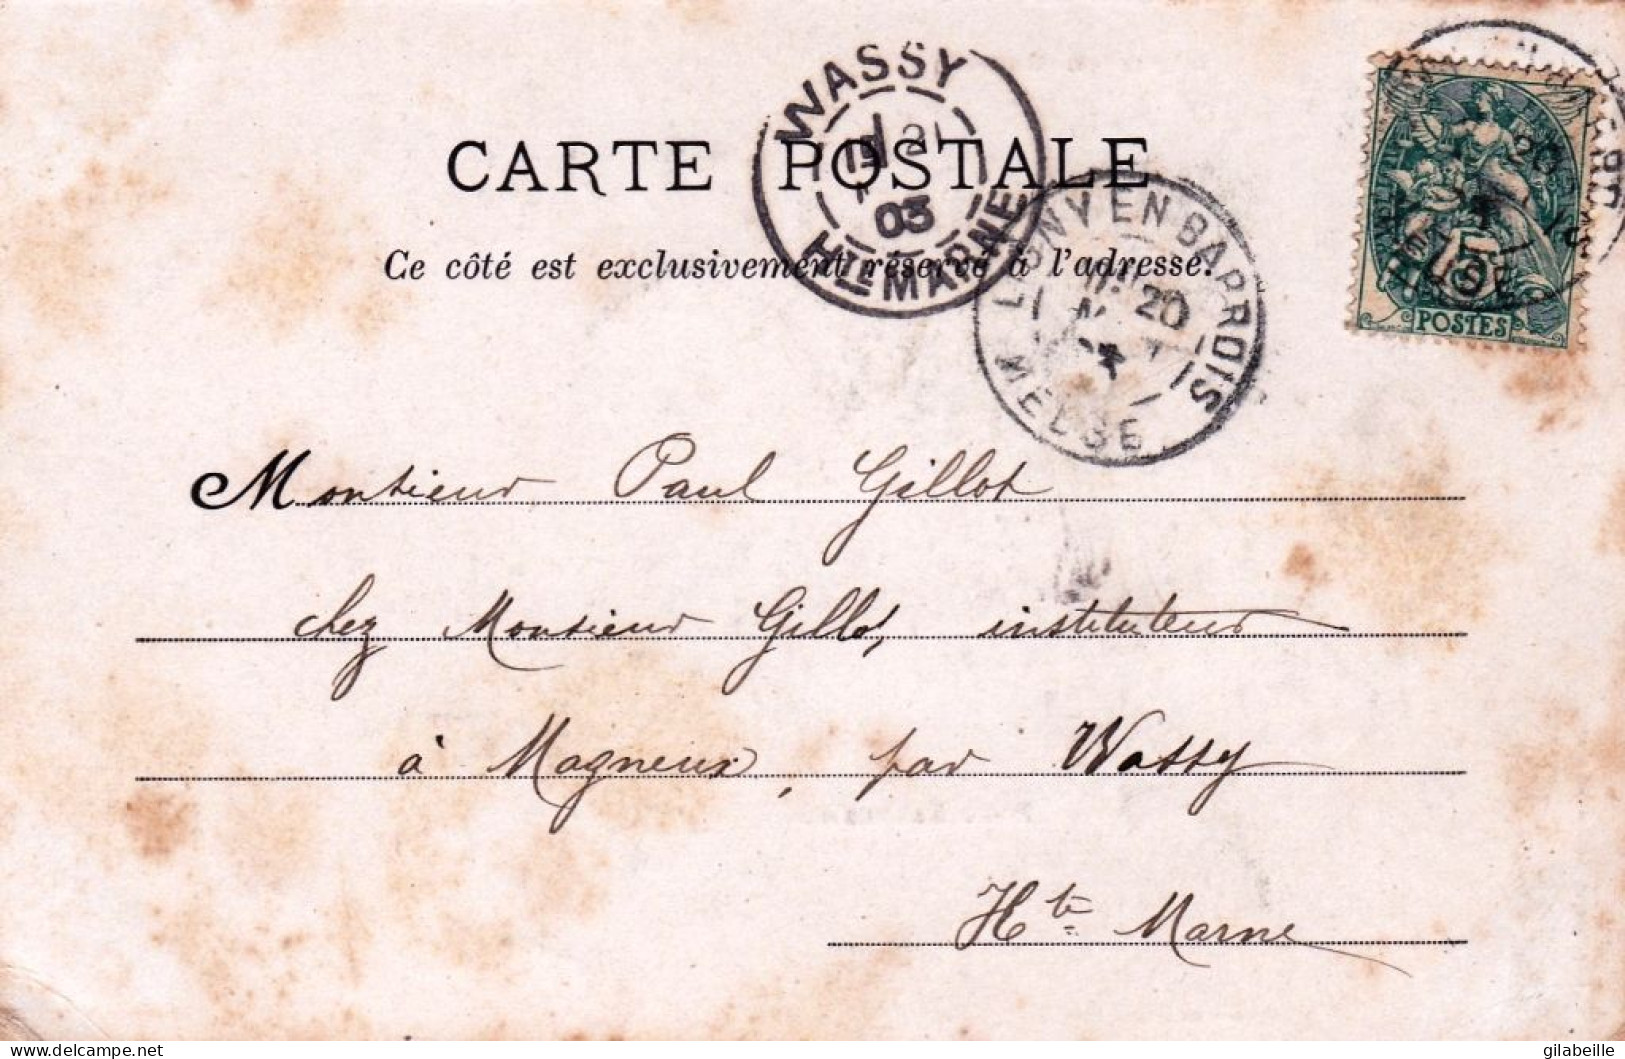 WASSY
21
03
Hte MARNE
CARTE POSTALE
Ce côté est exclusivement réservé à l'adresse.
LIGNY EN BARROIS
20
MEUSE
5
POSTES
Monsieur Paul Gillot
chez Monsieur Gillot, instituteur
à Magneux, par Wassy
Hte Marne
delcampe.net
gilabeille